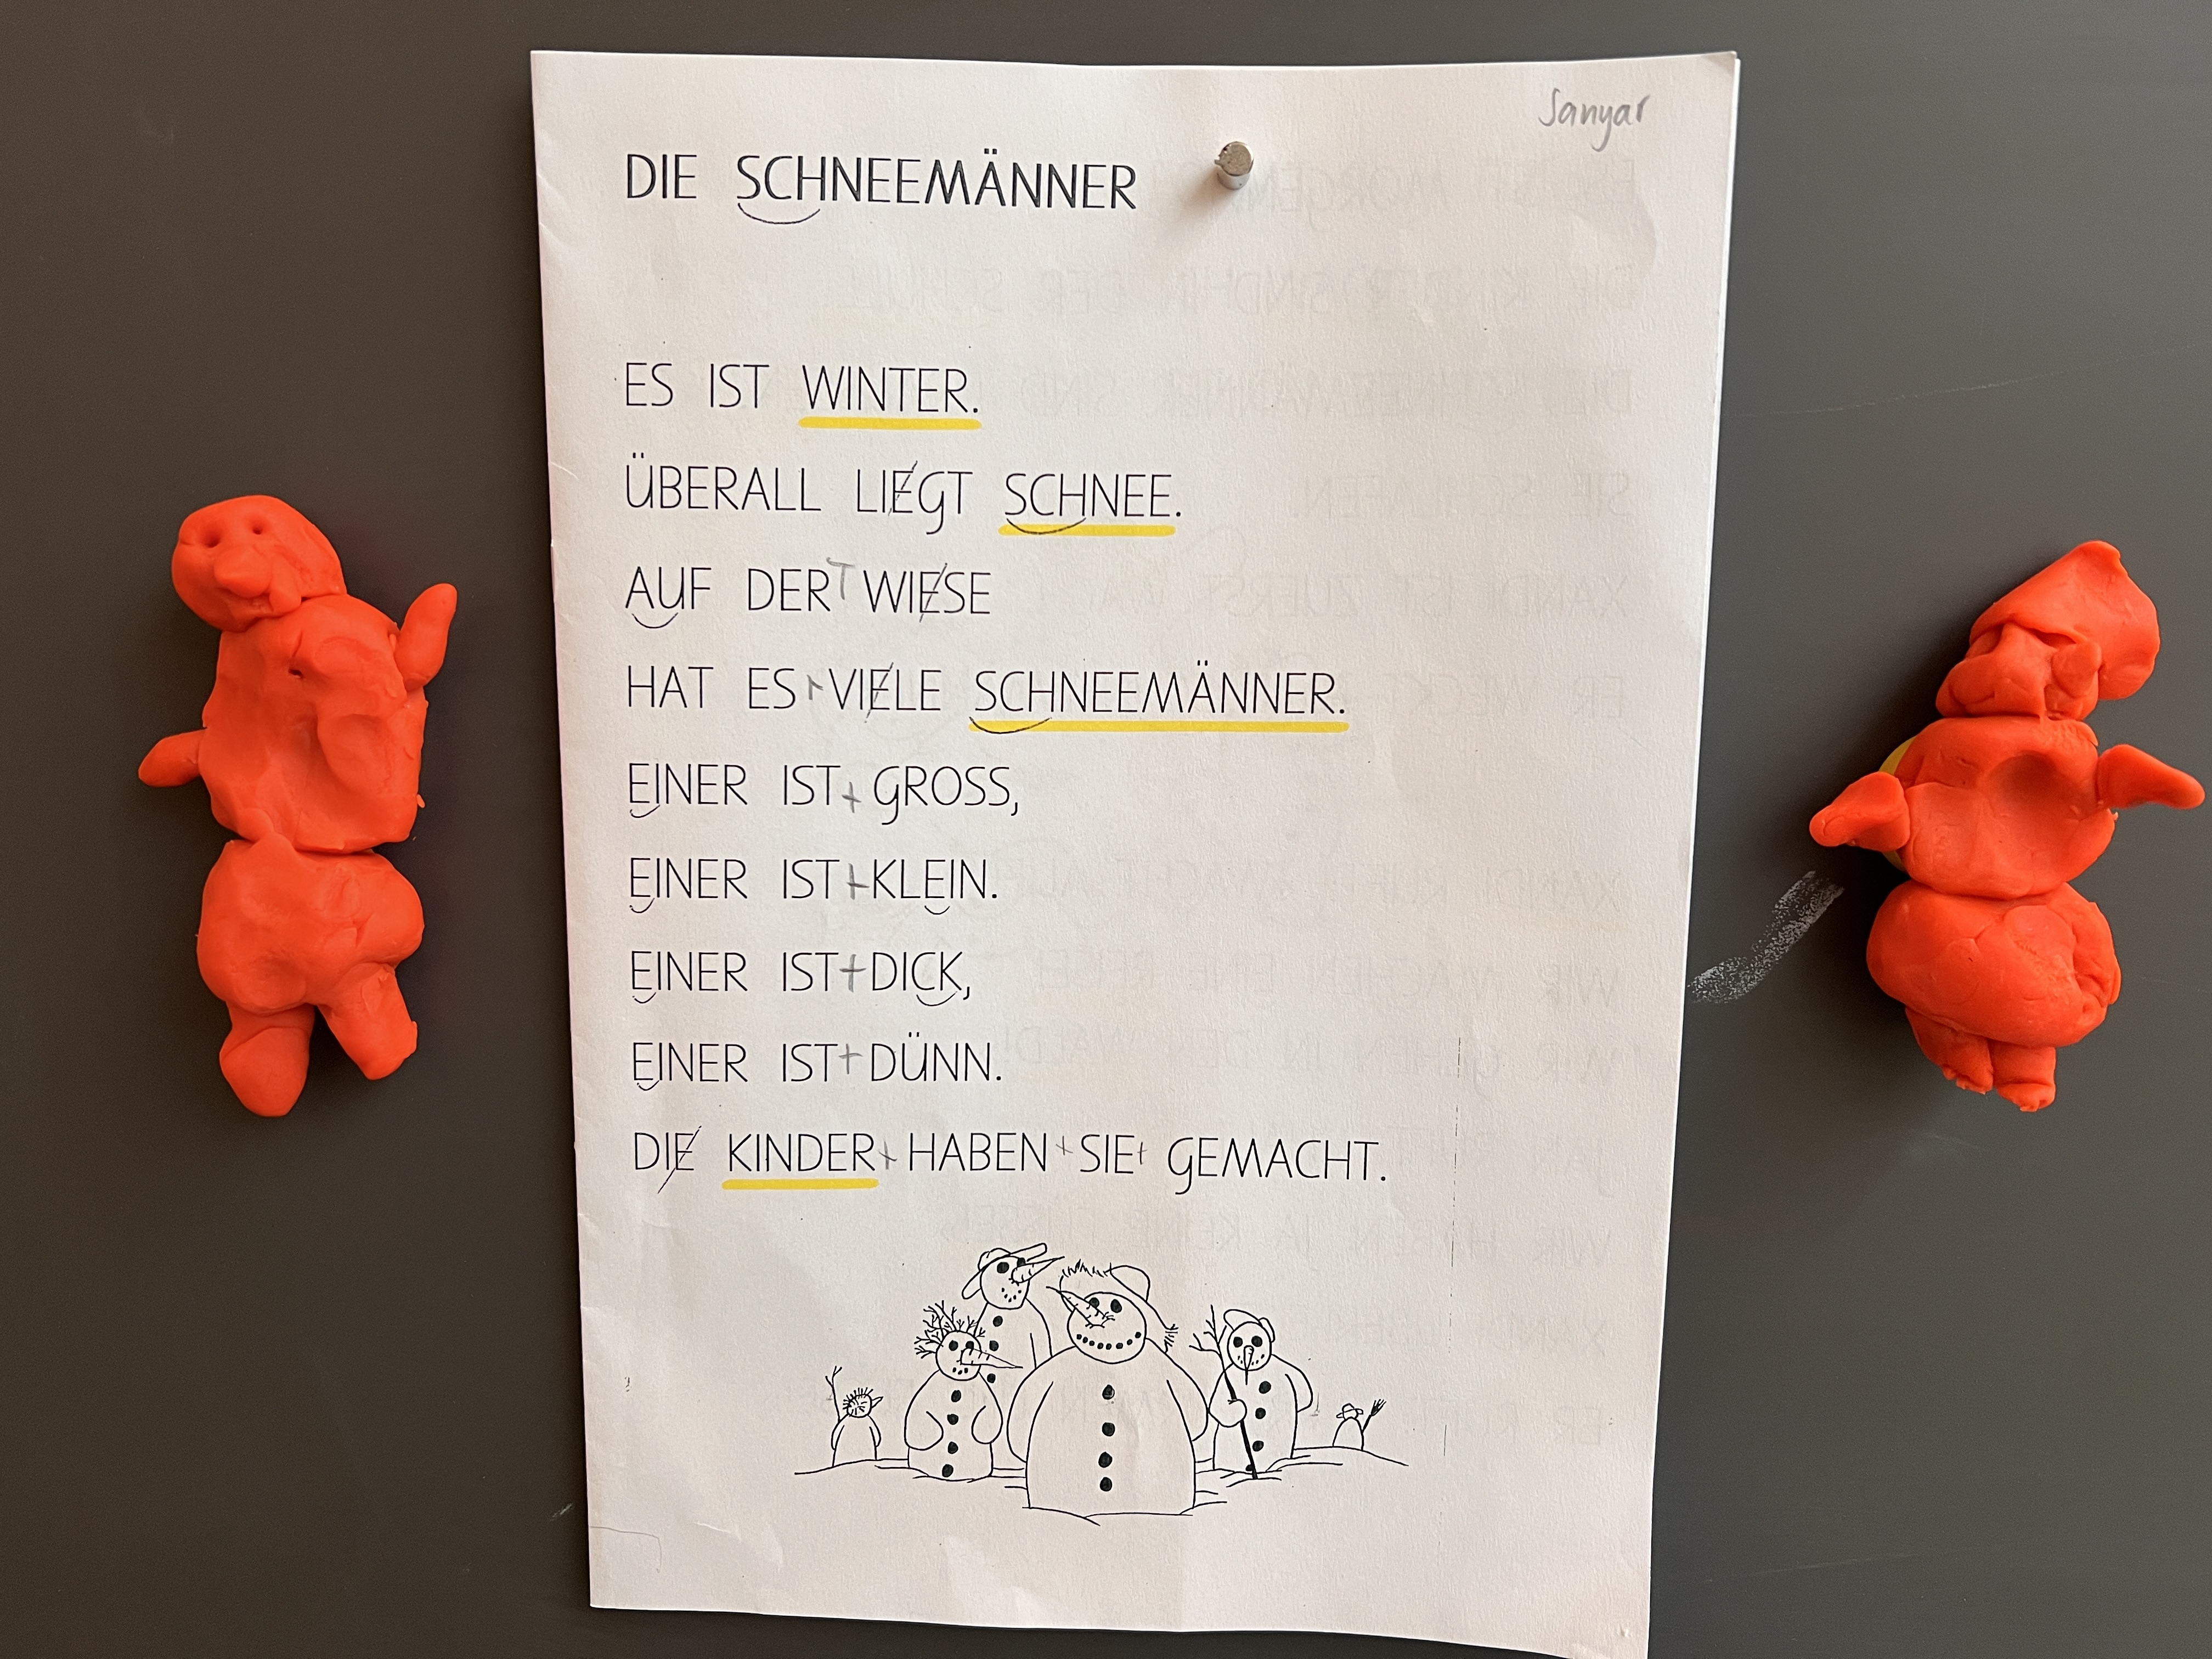 Sanyar
DIE SCHNEEMÄNNER
ES IST WINTER.
ÜBERALL LIEGT SCHNEE.
AUF DER WIESE
HAT ES VIELE SCHNEEMÄNNER.
EINER IST GROSS,
EINER IST KLEIN.
EINER IST DICK,
EINER IST DÜNN.
DIE KINDER HABEN SIE GEMACHT.